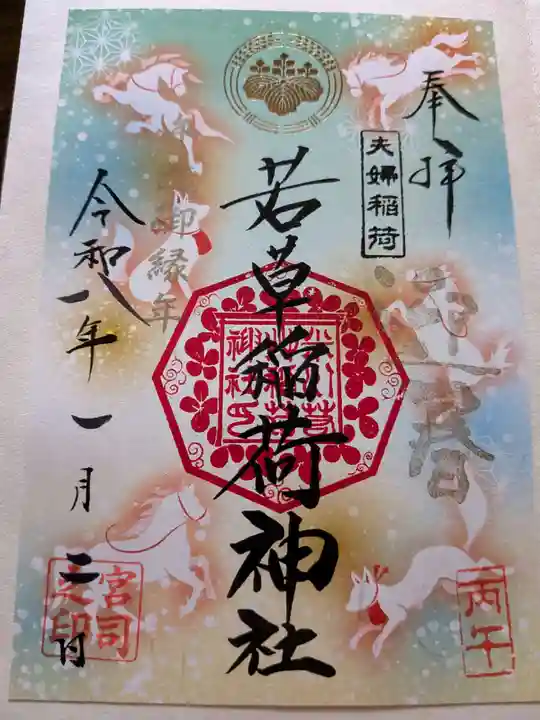 奉拝
夫婦稲荷
迎春
丙午
若草稲荷神社
御縁年
令和八年一月二日
宮司之印